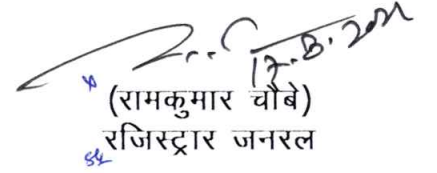 17.8.2021
(रामकुमार चौबे)
रजिस्ट्रार जनरल